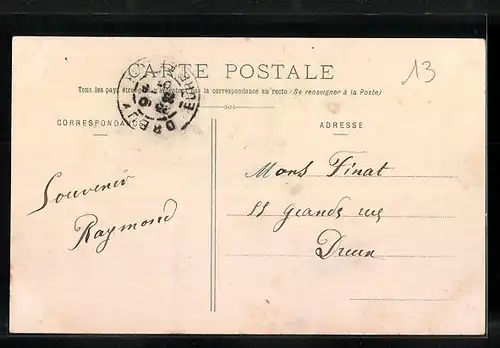 CARTE POSTALE
13
Tous les pays étrangers n'acceptent pas la correspondance au recto (Se renseigner à la Poste)
DREUX
EURE
CORRESPONDANCE
ADRESSE
Souvenir
Raymond
Mons Finat
Grande rue
Dreux